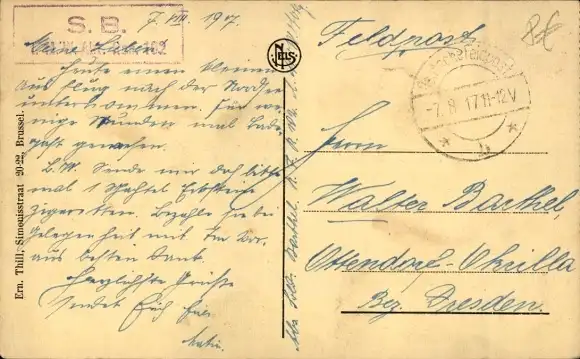 S. B.
7. VIII. 1917.
Meine Lieben
Heute einen kleinen
Ausflug nach der Nordsee
unternommen. Für we-
nige Stunden mal Bade-
gast gewesen.
B.W. Sende mir doch bitte
mal 1 Schachtel
Zigaretten. Bezahle sie bei
Gelegenheit mit. Im Vor-
aus besten Dank.
Herzlichste Grüsse
sendet Euch Euer
Ern. Thill, Simonisstraat 20-22, Brussel.
NELS
Feldpost
-7.8 17 11-12V
* b *
Herrn
Walter Barthel,
Ottendorf-Okrilla
Bez. Dresden.